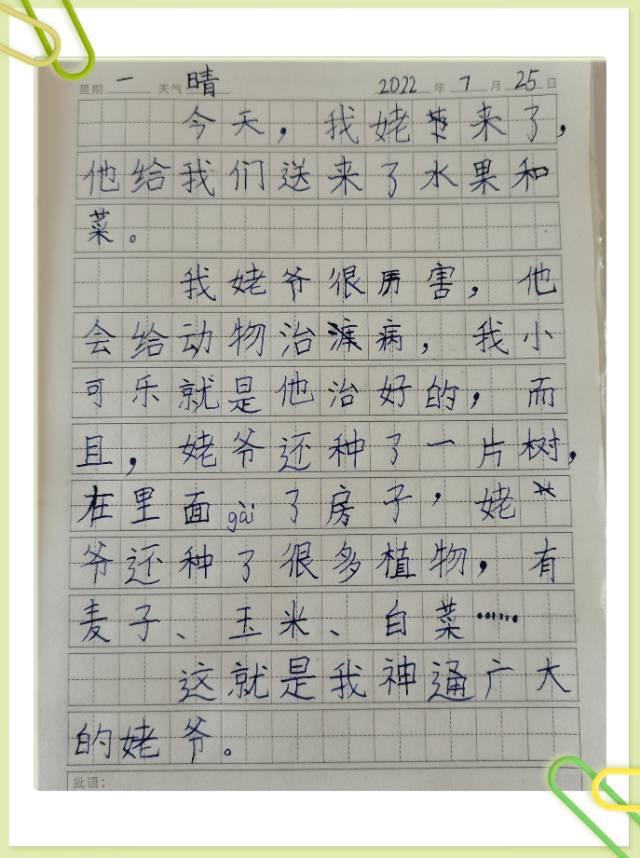 星期 一 天气 晴 2022 年 7 月 25 日
今天，我姥爷来了，
他给我们送来了水果和
菜。
我姥爷很厉害，他
会给动物治病，我小
可乐就是他治好的，而
且，姥爷还种了一片树，
在里面gài了房子，姥
爷还种了很多植物，有
麦子、玉米、白菜……
这就是我神通广大
的姥爷。
批语：